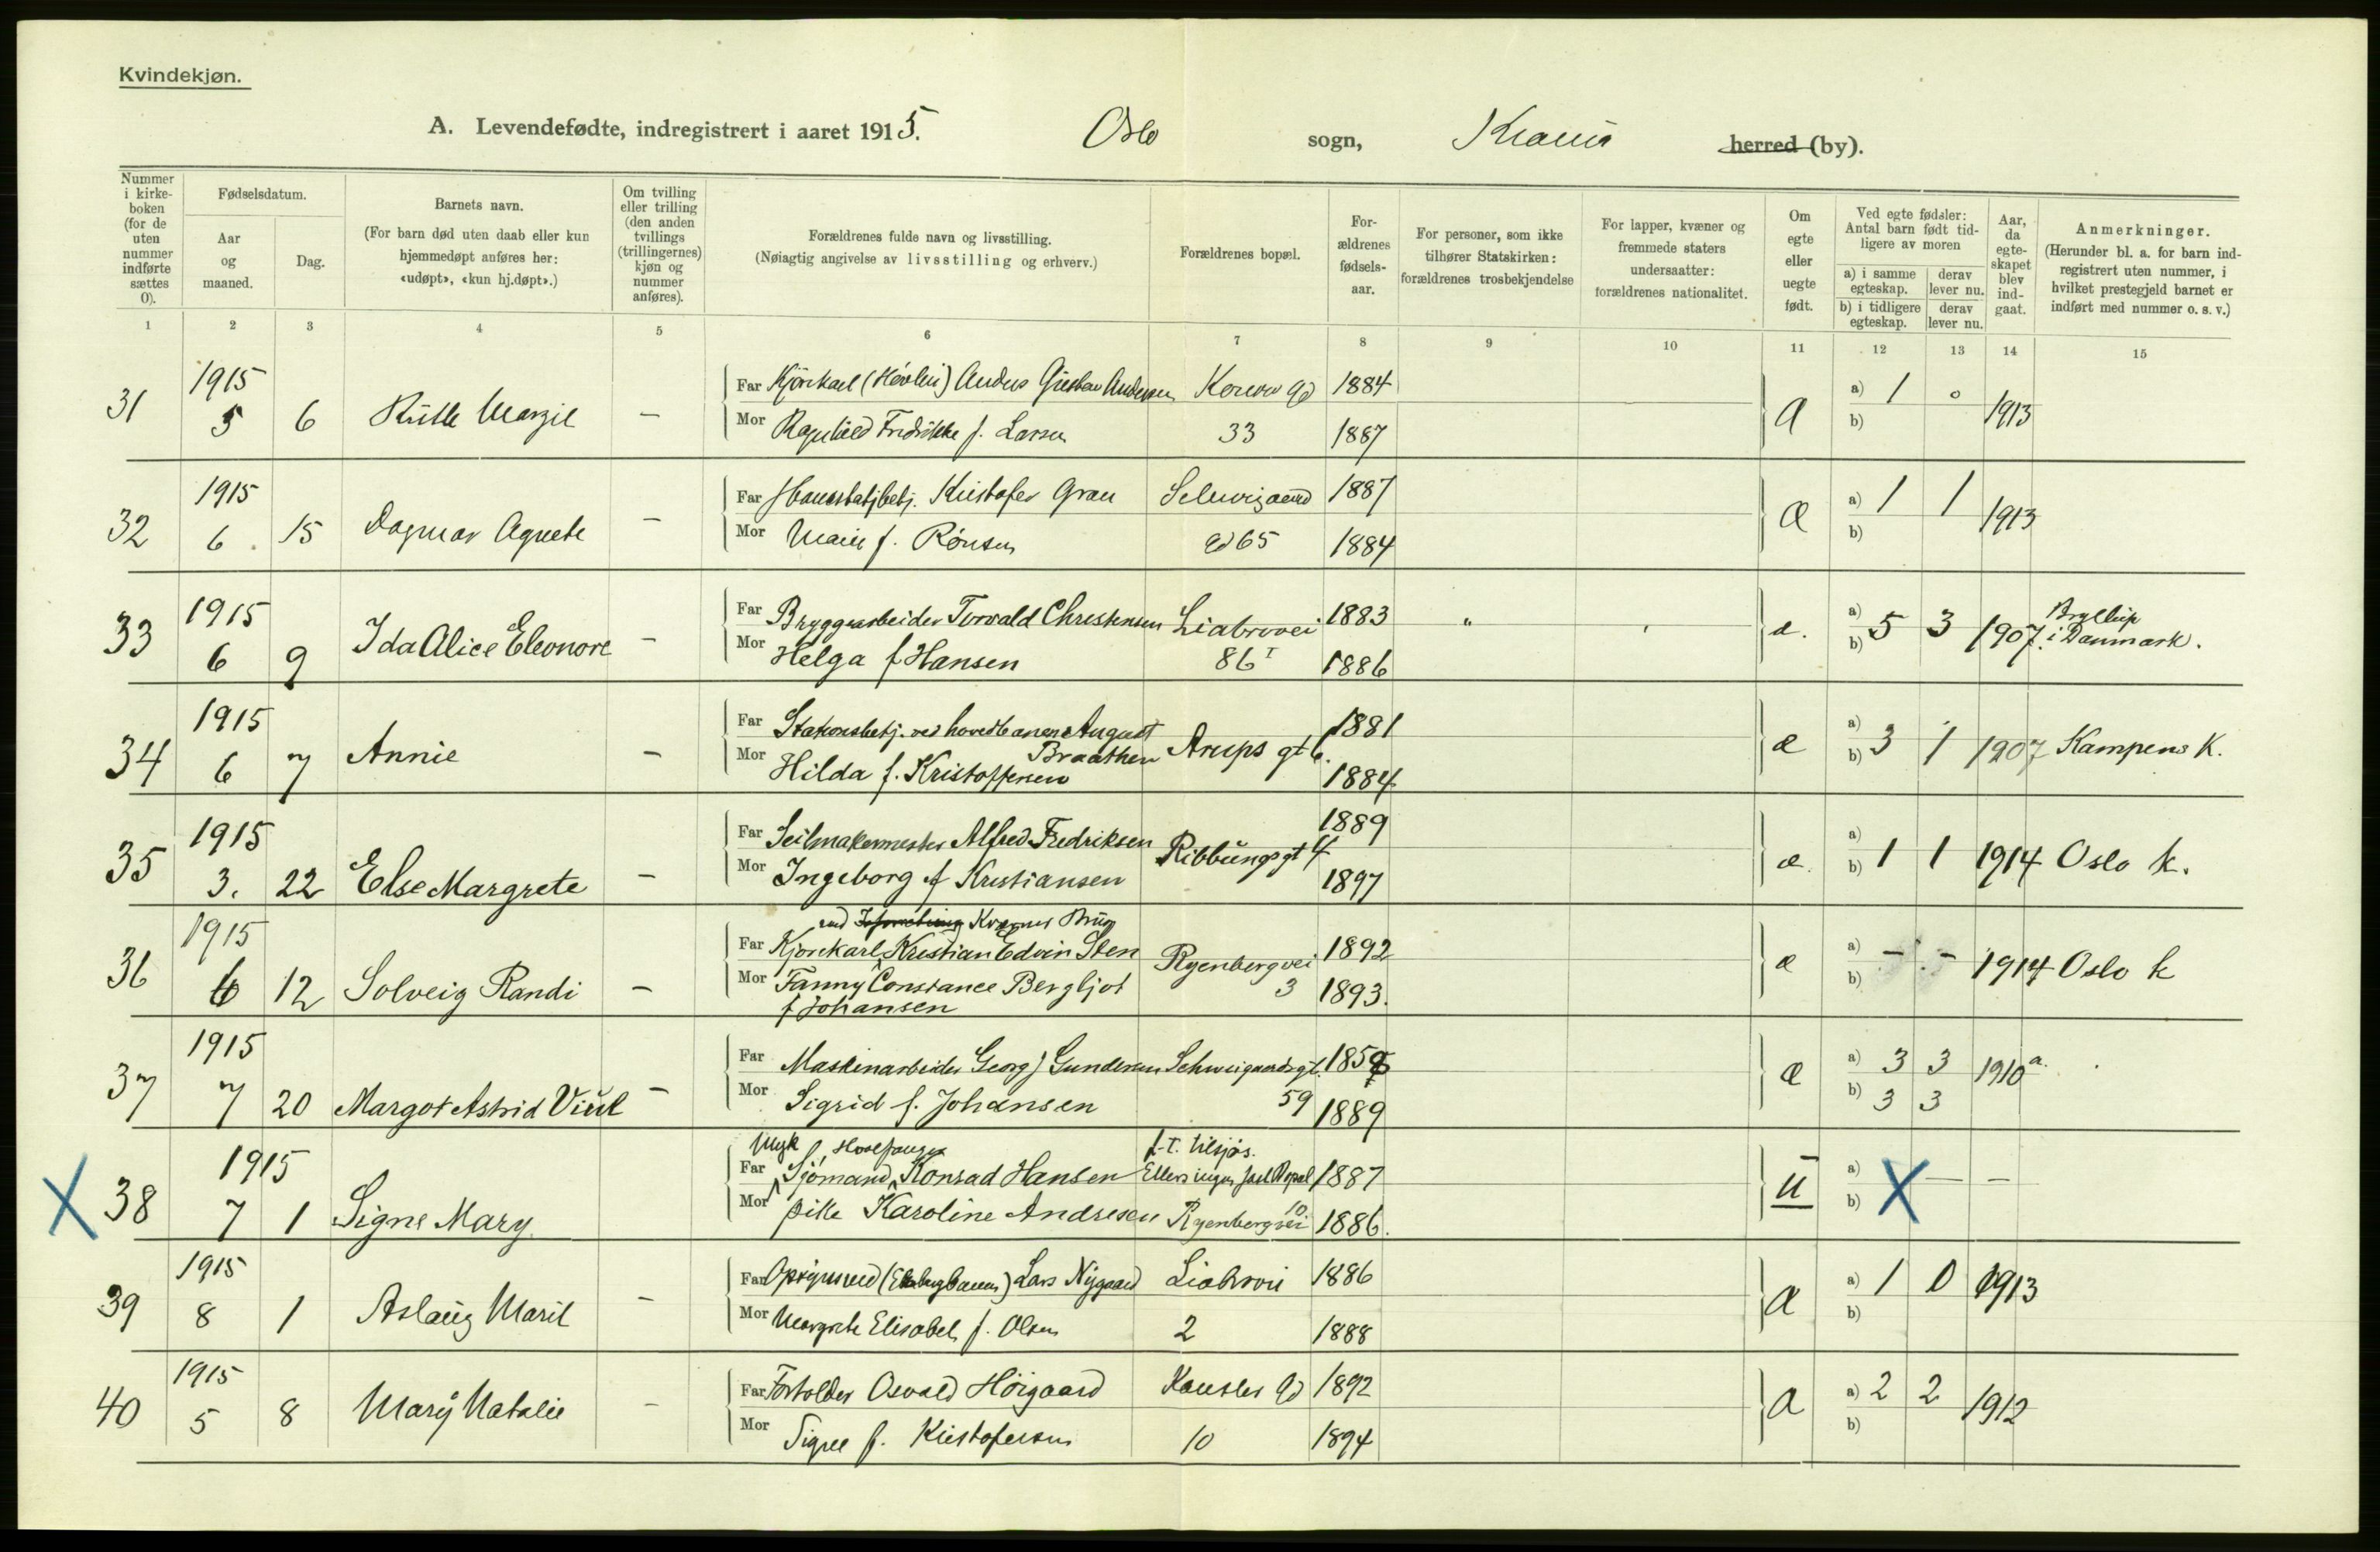 Kvindekjøn.
A. Levendefødte, indregistrert i aaret 1915. Oslo sogn, Krania herred (by).
Nummer i kirke-boken (for de uten nummer indførte sættes 0).
Fødselsdatum.
Aar og maaned.
Dag.
Barnets navn.
(For barn død uten daab eller kun hjemmedøpt anføres her: «udøpt», «kun hj.døpt».)
Om tvilling eller trilling (den anden tvillings (trillingernes) kjøn og nummer anføres).
Forældrenes fulde navn og livsstilling.
(Nøiagtig angivelse av livsstilling og erhverv.)
Forældrenes bopæl.
For-ældrenes fødsels-aar.
For personer, som ikke tilhører Statskirken: forældrenes trosbekjendelse
For lapper, kvæner og fremmede staters undersaatter: forældrenes nationalitet.
Om egte eller uegte født.
Ved egte fødsler: Antal barn født tid-ligere av moren
a) i samme egteskap. derav lever nu.
b) i tidligere egteskap. derav lever nu.
Aar, da egte-skapet blev ind-gaat.
Anmerkninger.
(Herunder bl. a. for barn ind-registrert uten nummer, i hvilket prestegjeld barnet er indført med nummer o. s. v.)
1 2 3 4 5 6 7 8 9 10 11 12 13 14 15
31 1915 5 6 Ruth Margit —
Far Kjørekarl (Høvleri) Anders Gustav Andersen 1884
Mor Ragnhild Fredrikke f. Larsen 33 1887
Æ a) 1 0 b) 1913
32 1915 6 15 Dagmar Agnete —
Far Kristofer Gran 1887
Mor Marie f. Rønsen 65 1884
Æ a) 1 1 b) 1913
33 1915 6 9 Ida Alice Eleonore —
Far Bryggearbeider Torvald Christensen Liabrovei 1883 "
Mor Helga f Hansen 86 I 1886
æ. a) b) 5 3 1907. Bryllup i Danmark.
34 1915 6 7 Annie —
Far Stationsbetj. ved hovedbanen August Braathen Arups gt 6. 1881
Mor Hilda f. Kristoffersen 1884
æ a) b) 3 1 1907 Kampens K.
35 1915 3. 22 Else Margrete —
Far Seilmakermester Alfred Fredriksen Ribbungsgt 4 1889
Mor Ingeborg f Kristiansen 1897
æ. a) b) 1 1 1914 Oslo k.
36 1915 6 12 Solveig Randi —
ved Kværner Brug
Far Kjørekarl Kristian Edvin Sten Ryenbergvei 1892
Mor Fanny Constance Bergljot 3 1893.
f Johansen
æ a) b) - - 1914 Oslo k
37 1915 7 20 Margot Astrid Viul —
Far Maskinarbeider Georg J Gundersen Schweigaardsgt. 1859
Mor Sigrid f. Johansen 59 1889
Æ a) 3 3 b) 3 3 1910 a.
X 38 1915 7 1 Signe Mary
f.t. tilsjøs.
Far Sjømand Konrad Hansen Ellers ingen fast Bopæl 1887
Mor pike Karoline Andresen Ryenbergvei 10 1886.
U a) b) X — —
39 1915 8 1 Aslaug Marit —
Far Lars Nygaard Liabrovei 1886
Mor Margrete Elisabet f. Olsen 2 1888
Æ a) 1 0 b) 1913
40 1915 5 8 Mary Natalie —
Far Forholder Osvald Høigaard Kanslergd 1892
Mor Signe f. Kristofersen 10 1894
Æ a) 2 2 b) 1912